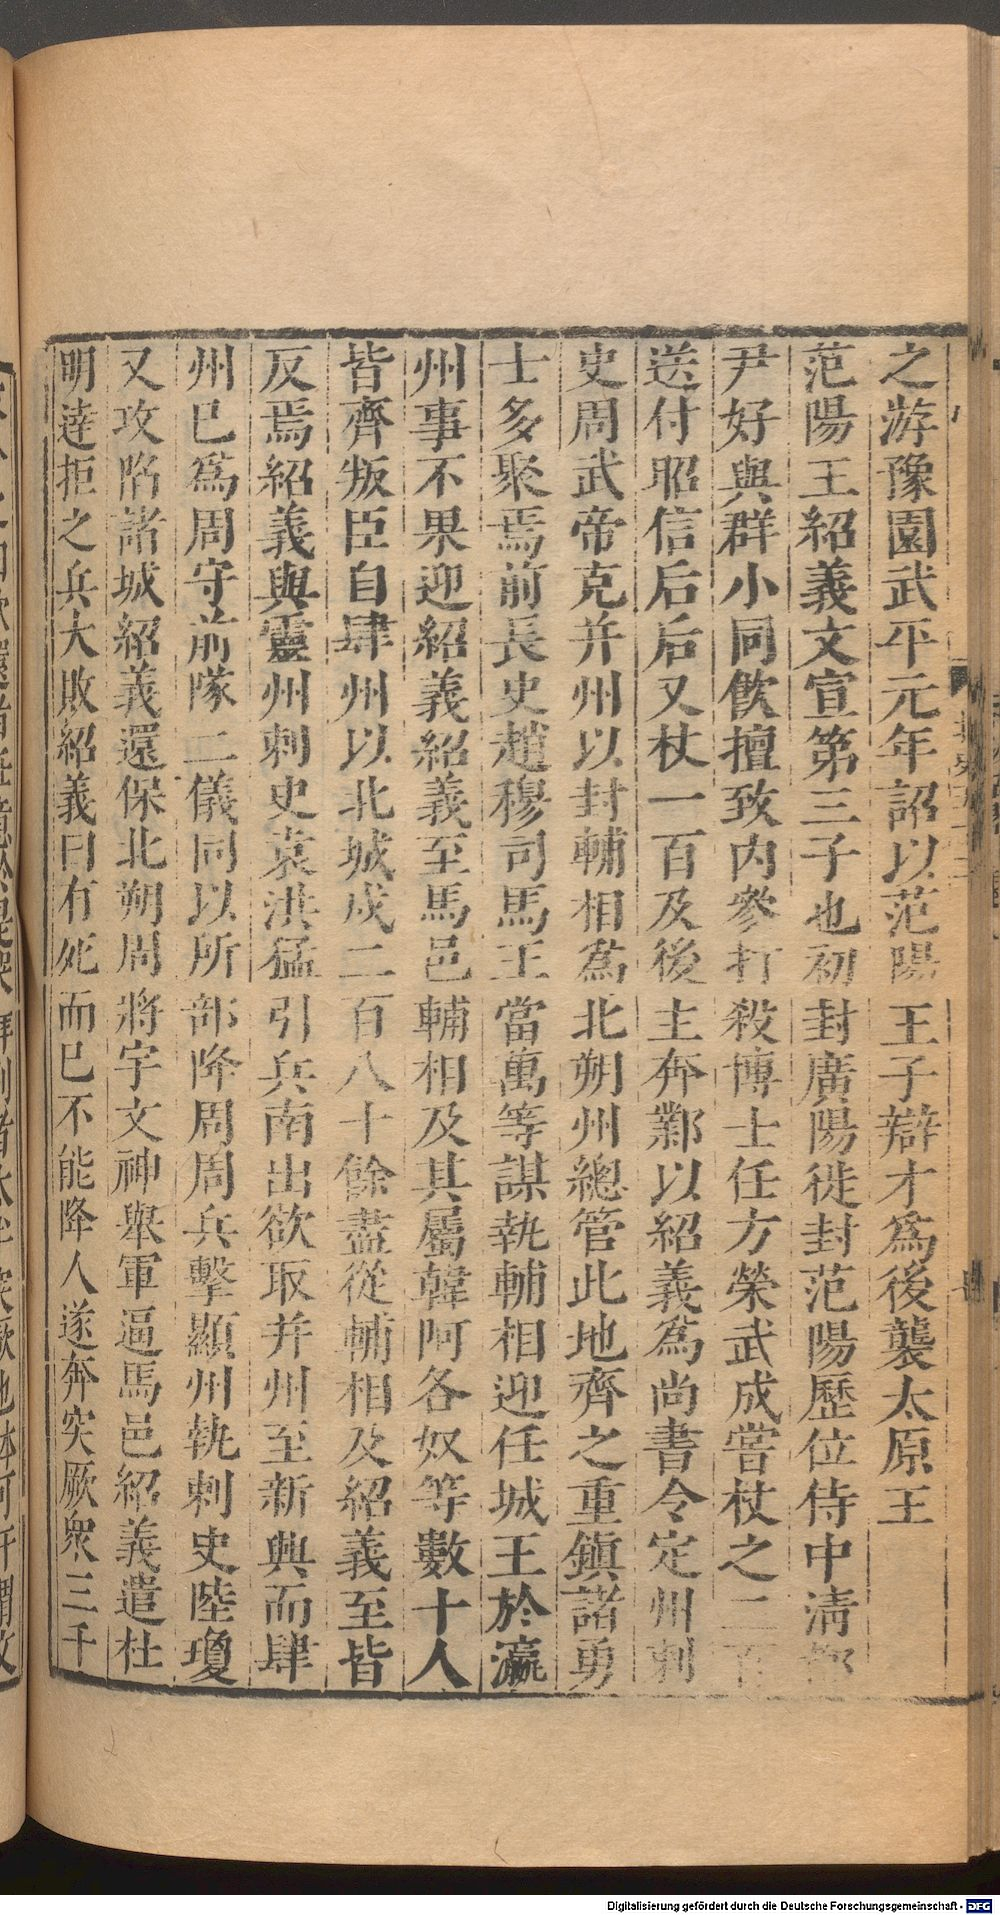 之游豫園武平元年詔以范陽王子辯才爲後襲太原王
范陽王紹義文宣第三子也初封廣陽徙封范陽歷位侍中清都
尹好與群小同飲擅致内參打殺博士任方榮武成嘗杖之二百
送付昭信后后又杖一百及後主奔鄴以紹義爲尚書令定州刺
史周武帝克并州以封輔相爲北朔州總管此地齊之重鎮諸勇
士多聚焉前長史趙穆司馬王當萬等謀執輔相迎任城王於瀛
州事不果迎紹義紹義至馬邑輔相及其屬韓阿各奴等數十人
皆齊叛臣自肆州以北城戍二百八十餘盡從輔相及紹義至皆
反焉紹義與靈州刺史袁洪猛引兵南出欲取并州至新興而肆
州已爲周守前隊二儀同以所部降周周兵擊顯州執刺史陸瓊
又攻陷諸城紹義還保北朔周將宇文神舉軍逼馬邑紹義遣杜
明達拒之兵大敗紹義曰有死而已不能降人遂奔突厥衆三千
Digitalisierung gefördert durch die Deutsche Forschungsgemeinschaft - DFG